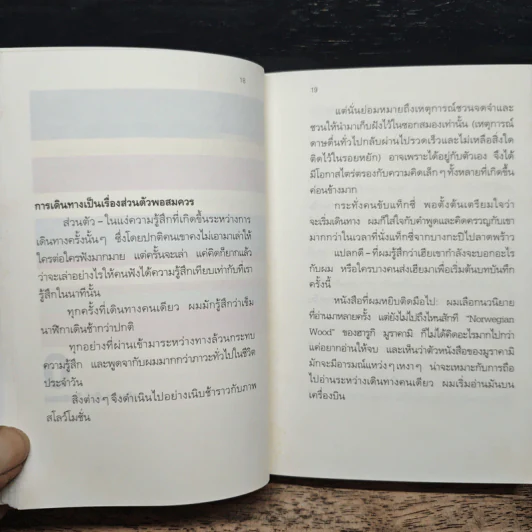 18
การเดินทางเป็นเรื่องส่วนตัวพอสมควร
ส่วนตัว – ในแง่ความรู้สึกที่เกิดขึ้นระหว่างการ
เดินทางครั้งนั้นๆ ซึ่งโดยปกติคนเขาคงไม่เอามาเล่าให้
ใครต่อใครฟังมากมาย แต่ครั้นจะเล่า แค่คิดก็ยากแล้ว
ว่าจะเล่าอย่างไรให้คนฟังได้ความรู้สึกเทียบเท่ากับที่เรา
รู้สึกในนาทีนั้น
ทุกครั้งที่เดินทางคนเดียว ผมมักรู้สึกว่าเข็ม
นาฬิกาเดินช้ากว่าปกติ
ทุกอย่างที่ผ่านเข้ามาระหว่างทางล้วนกระทบ
ความรู้สึก และพูดจากับผมมากกว่าภาวะทั่วไปในชีวิต
ประจำวัน
สิ่งต่างๆ จึงดำเนินไปอย่างเนิบช้าราวกับภาพ
สโลว์โมชั่น
19
แต่นั่นย่อมหมายถึงเหตุการณ์ชวนจดจำและ
ชวนให้นำมาเก็บฝังไว้ในซอกสมองเท่านั้น (เหตุการณ์
ดาษดื่นทั่วไปกลับผ่านไปรวดเร็วและไม่เหลือสิ่งใด
ติดไว้ในรอยหยัก) อาจเพราะได้อยู่กับตัวเอง จึงได้
มีโอกาสไตร่ตรองกับความคิดเล็กๆ ทั้งหลายที่เกิดขึ้น
ค่อนข้างมาก
กระทั่งคนขับแท็กซี่ พอตั้งต้นเตรียมใจว่า
จะเริ่มเดินทาง ผมก็ใส่ใจกับคำพูดและคิดคร่ำครวญกับเขา
มากกว่าในเวลาที่นั่งแท็กซี่จากบางกะปิไปลาดพร้าว
แปลกดี – ที่ผมรู้สึกว่าเฮียเขากำลังจะบอกอะไร
กับผม หรือใครบางคนส่งเฮียมาเพื่อเริ่มต้นบทบันทึก
ครั้งนี้
หนังสือที่ผมหยิบติดมือไป ผมเลือกทวนนิยาย
ที่อ่านมาหลายครั้ง แต่ยังไม่ไปถึงไหนสักที "Norwegian
Wood" ของฮารูกิ มูราคามิ ก็ไม่ได้คิดอะไรมากไปกว่า
แค่อยากอ่านให้จบ และเห็นว่าตัวหนังสือของมูราคามิ
มักจะมีอารมณ์แหว่งๆ เหงาๆ น่าจะเหมาะกับการถือ
ไปอ่านระหว่างเดินทางคนเดียว ผมเริ่มอ่านมันบน
เครื่องบิน